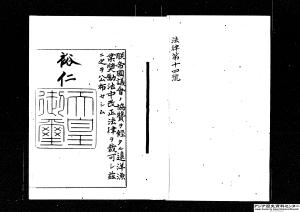 法律第十四號
朕帝國議會ノ協賛ヲ経タル遠洋漁
業奨勵法中改正法律ヲ裁可シ茲
ニ之ヲ公布セシム
裕仁
天皇
御璽
アジア歴史資料センター